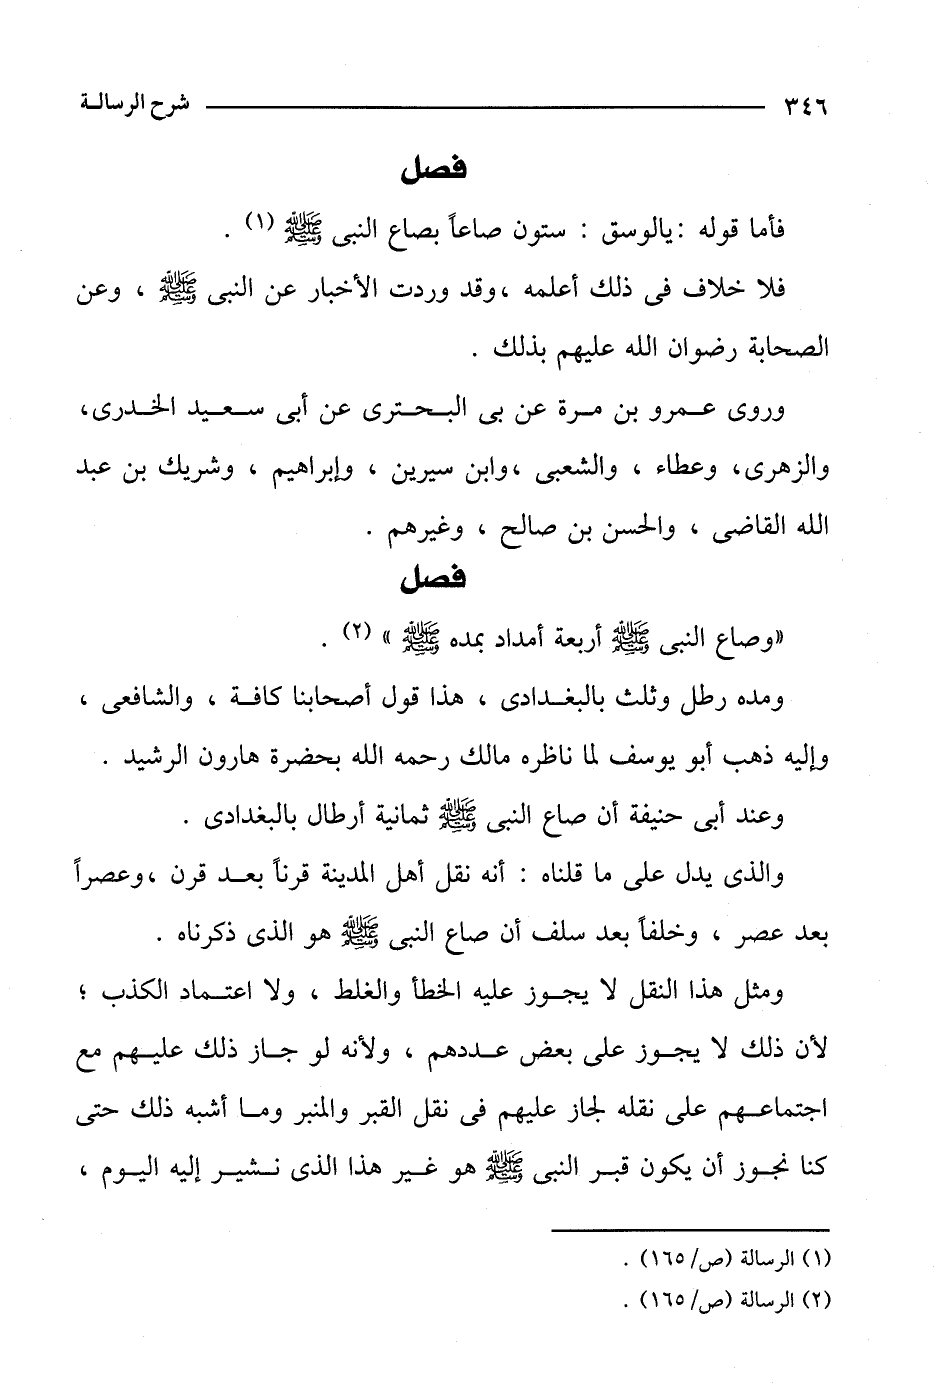 ٣٤٦ شرح الرسالة
فصل
فأما قوله :يالوسق : ستون صاعاً بصاع النبى ﷺ (١) .
فلا خلاف فى ذلك أعلمه ،وقد وردت الأخبار عن النبى ﷺ ، وعن
الصحابة رضوان الله عليهم بذلك .
وروى عمرو بن مرة عن بى البحترى عن أبى سعيد الخدرى،
والزهرى، وعطاء ، والشعبى ،وابن سيرين ، وإبراهيم ، وشريك بن عبد
الله القاضى ، والحسن بن صالح ، وغيرهم .
فصل
«وصاع النبى ﷺ أربعة أمداد بمده ﷺ » (٢) .
ومده رطل وثلث بالبغدادى ، هذا قول أصحابنا كافة ، والشافعى ،
وإليه ذهب أبو يوسف لما ناظره مالك رحمه الله بحضرة هارون الرشيد .
وعند أبى حنيفة أن صاع النبى ﷺ ثمانية أرطال بالبغدادى .
والذى يدل على ما قلناه : أنه نقل أهل المدينة قرناً بعد قرن ،وعصراً
بعد عصر ، وخلفاً بعد سلف أن صاع النبى ﷺ هو الذى ذكرناه .
ومثل هذا النقل لا يجوز عليه الخطأ والغلط ، ولا اعتماد الكذب ؛
لأن ذلك لا يجوز على بعض عددهم ، ولأنه لو جاز ذلك عليهم مع
اجتماعهم على نقله لجاز عليهم فى نقل القبر والمنبر وما أشبه ذلك حتى
كنا نجوز أن يكون قبر النبى ﷺ هو غير هذا الذى نشير إليه اليوم ،
(١) الرسالة (ص/ ١٦٥) .
(٢) الرسالة (ص/ ١٦٥) .